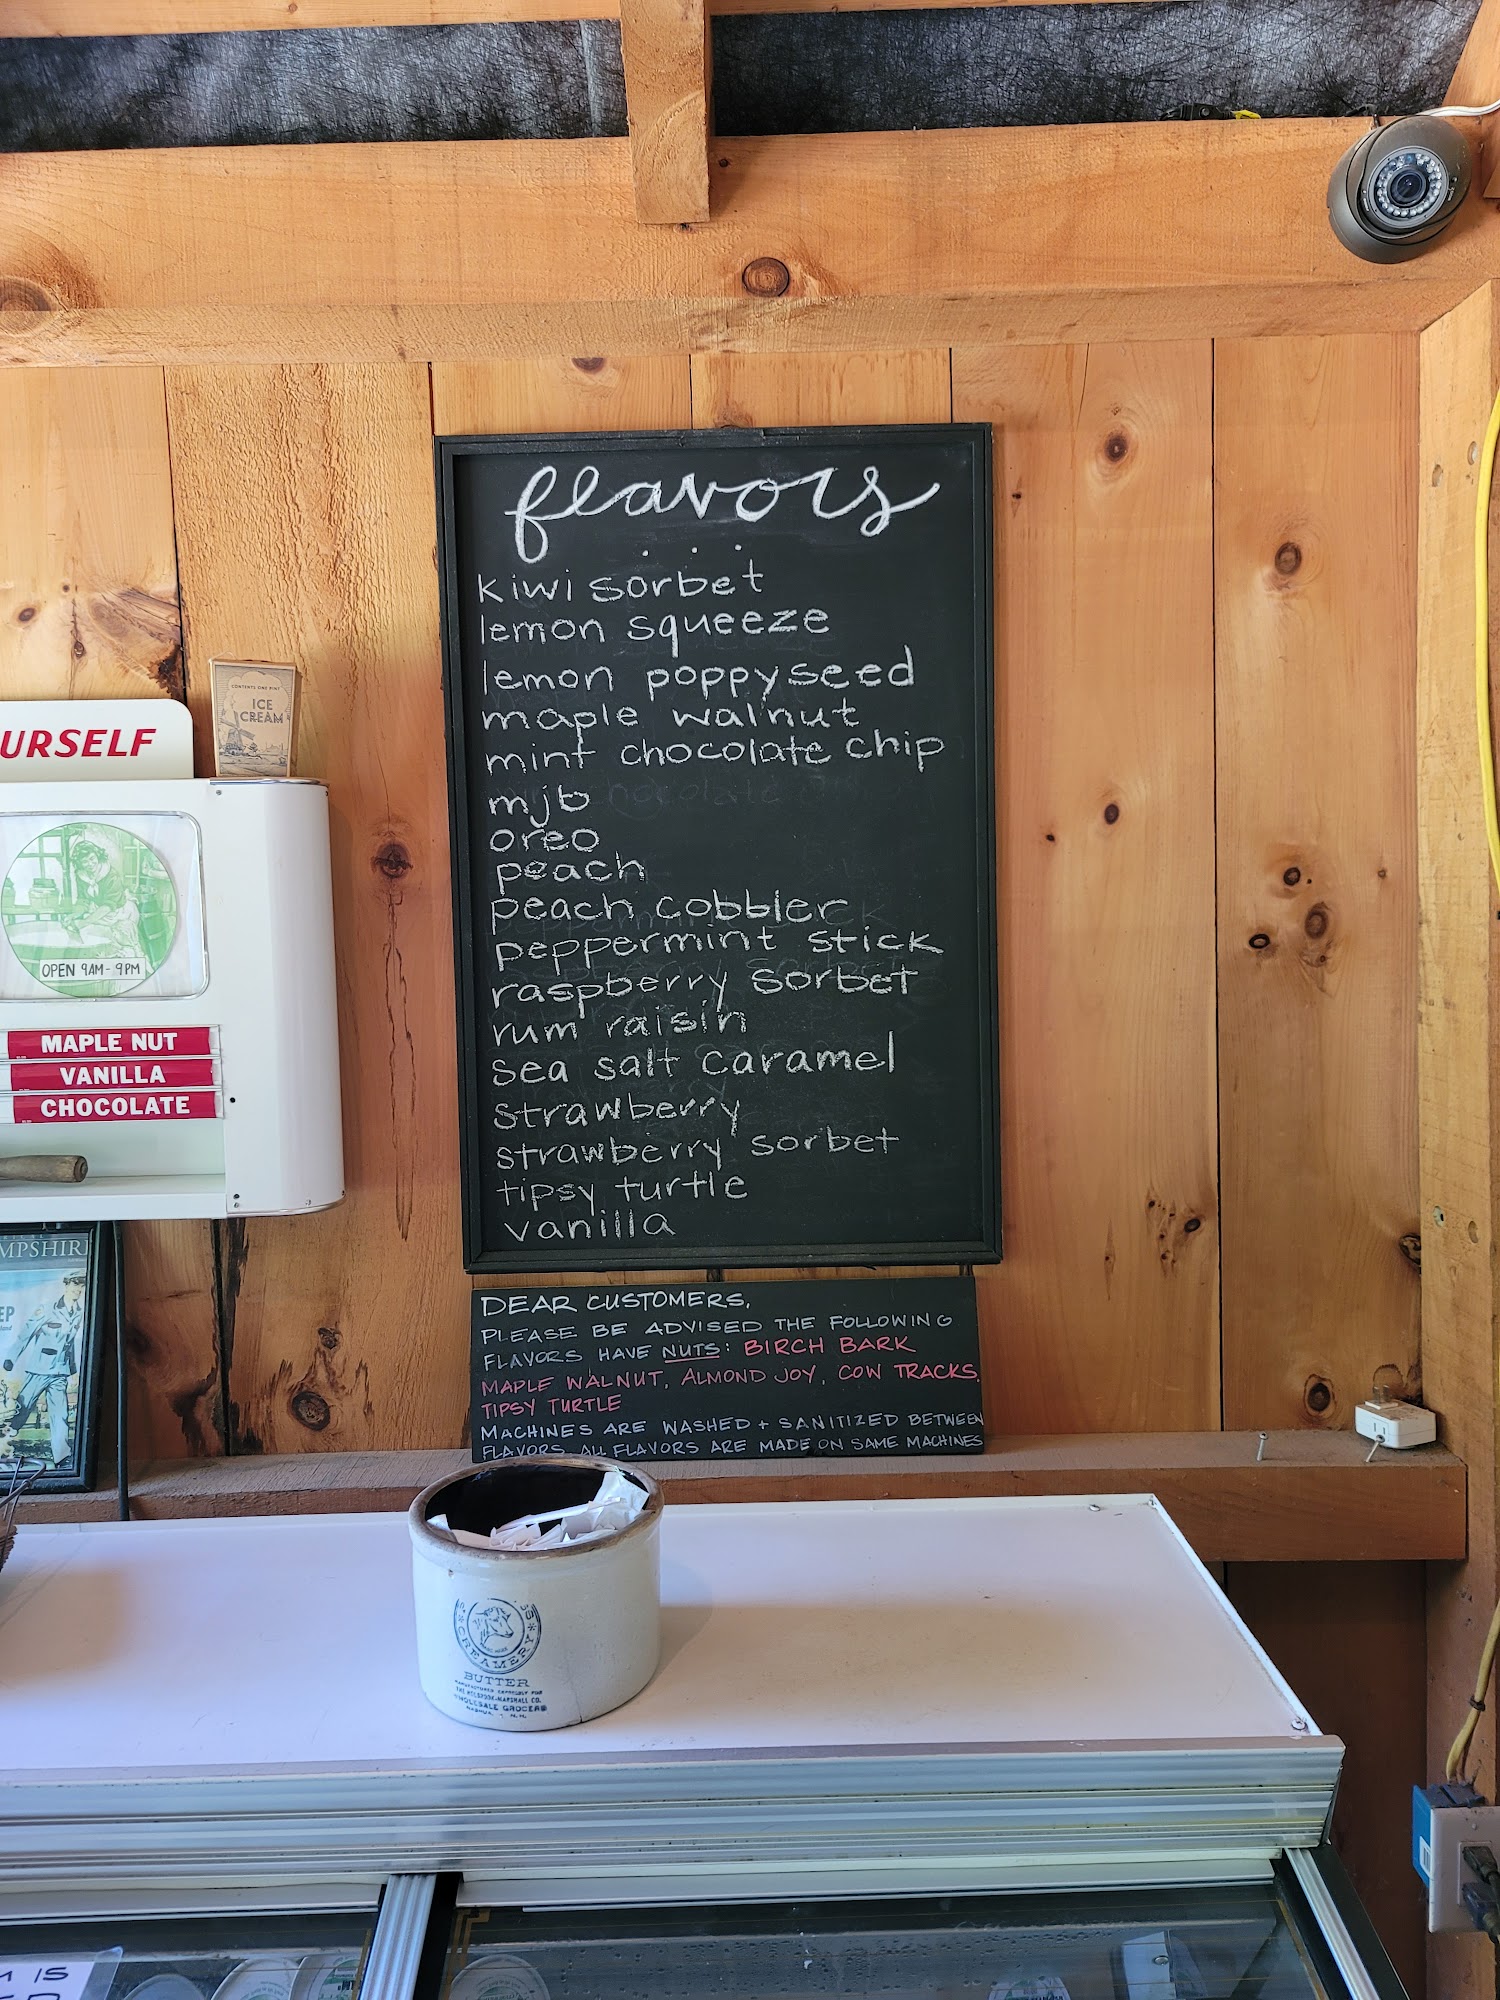 flavors
kiwi sorbet
lemon squeeze
lemon poppyseed
maple walnut
mint chocolate chip
mjb
oreo
peach
peach cobbler
peppermint stick
raspberry sorbet
rum raisin
sea salt caramel
strawberry
strawberry sorbet
tipsy turtle
vanilla
DEAR CUSTOMERS,
PLEASE BE ADVISED THE FOLLOWING
FLAVORS HAVE NUTS: BIRCH BARK
MAPLE WALNUT, ALMOND JOY, COW TRACKS,
TIPSY TURTLE
MACHINES ARE WASHED + SANITIZED BETWEEN
FLAVORS. ALL FLAVORS ARE MADE ON SAME MACHINES
CONTENTS ONE PINT
ICE
CREAM
URSELF
OPEN 9AM - 9PM
MAPLE NUT
VANILLA
CHOCOLATE
MPSHIR
EP
CREAMERY
BUTTER
MANUFACTURED EXPRESSLY FOR
WHOLESALE GROCERS
N.H.
M IS